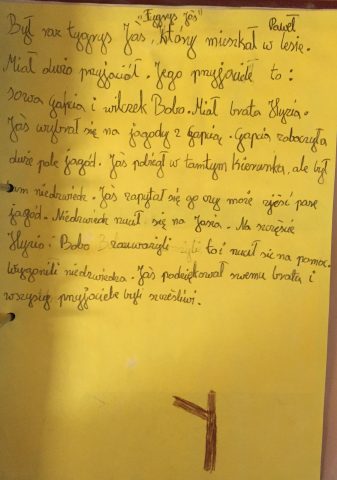 "Tygrys Jaś" Paweł
Był raz tygrys Jaś, który mieszkał w lesie.
Miał dużo przyjaciół. Jego przyjaciele to:
sowa Gapcia i wilczek Bobo. Miał brata Hyzia.
Jaś wybrał się na jagody z Gapcią. Gapcia zobaczyła
duże pole jagód. Jaś pobiegł w tamtym kierunku, ale był
tam niedzwiedź. Jaś zapytał się go czy może zjeść parę
jagód. Niedzwiedź rzucił się na Jasia. Na szczęście
Hyzio i Bobo zauwarzyli to i rzucił się na pomoc.
Wygonili niedzwiedzia. Jaś podziękował swemu bratu i
wszyscy przyjaciele byli szczęśliwi.